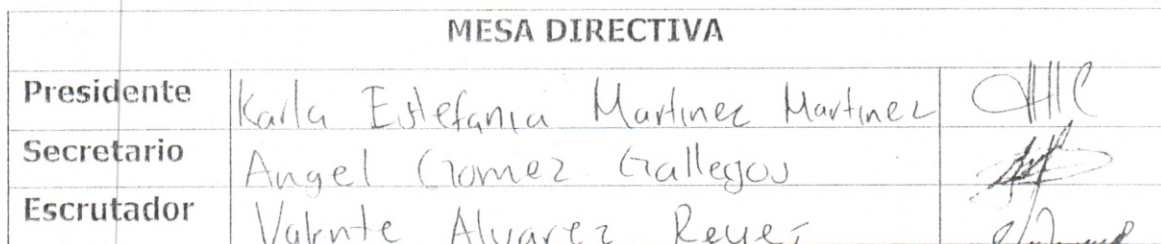 MESA DIRECTIVA
Presidente Karla Estefania Martinez Martinez
Secretario Angel Gomez Gallegos
Escrutador Valente Alvarez Reyes